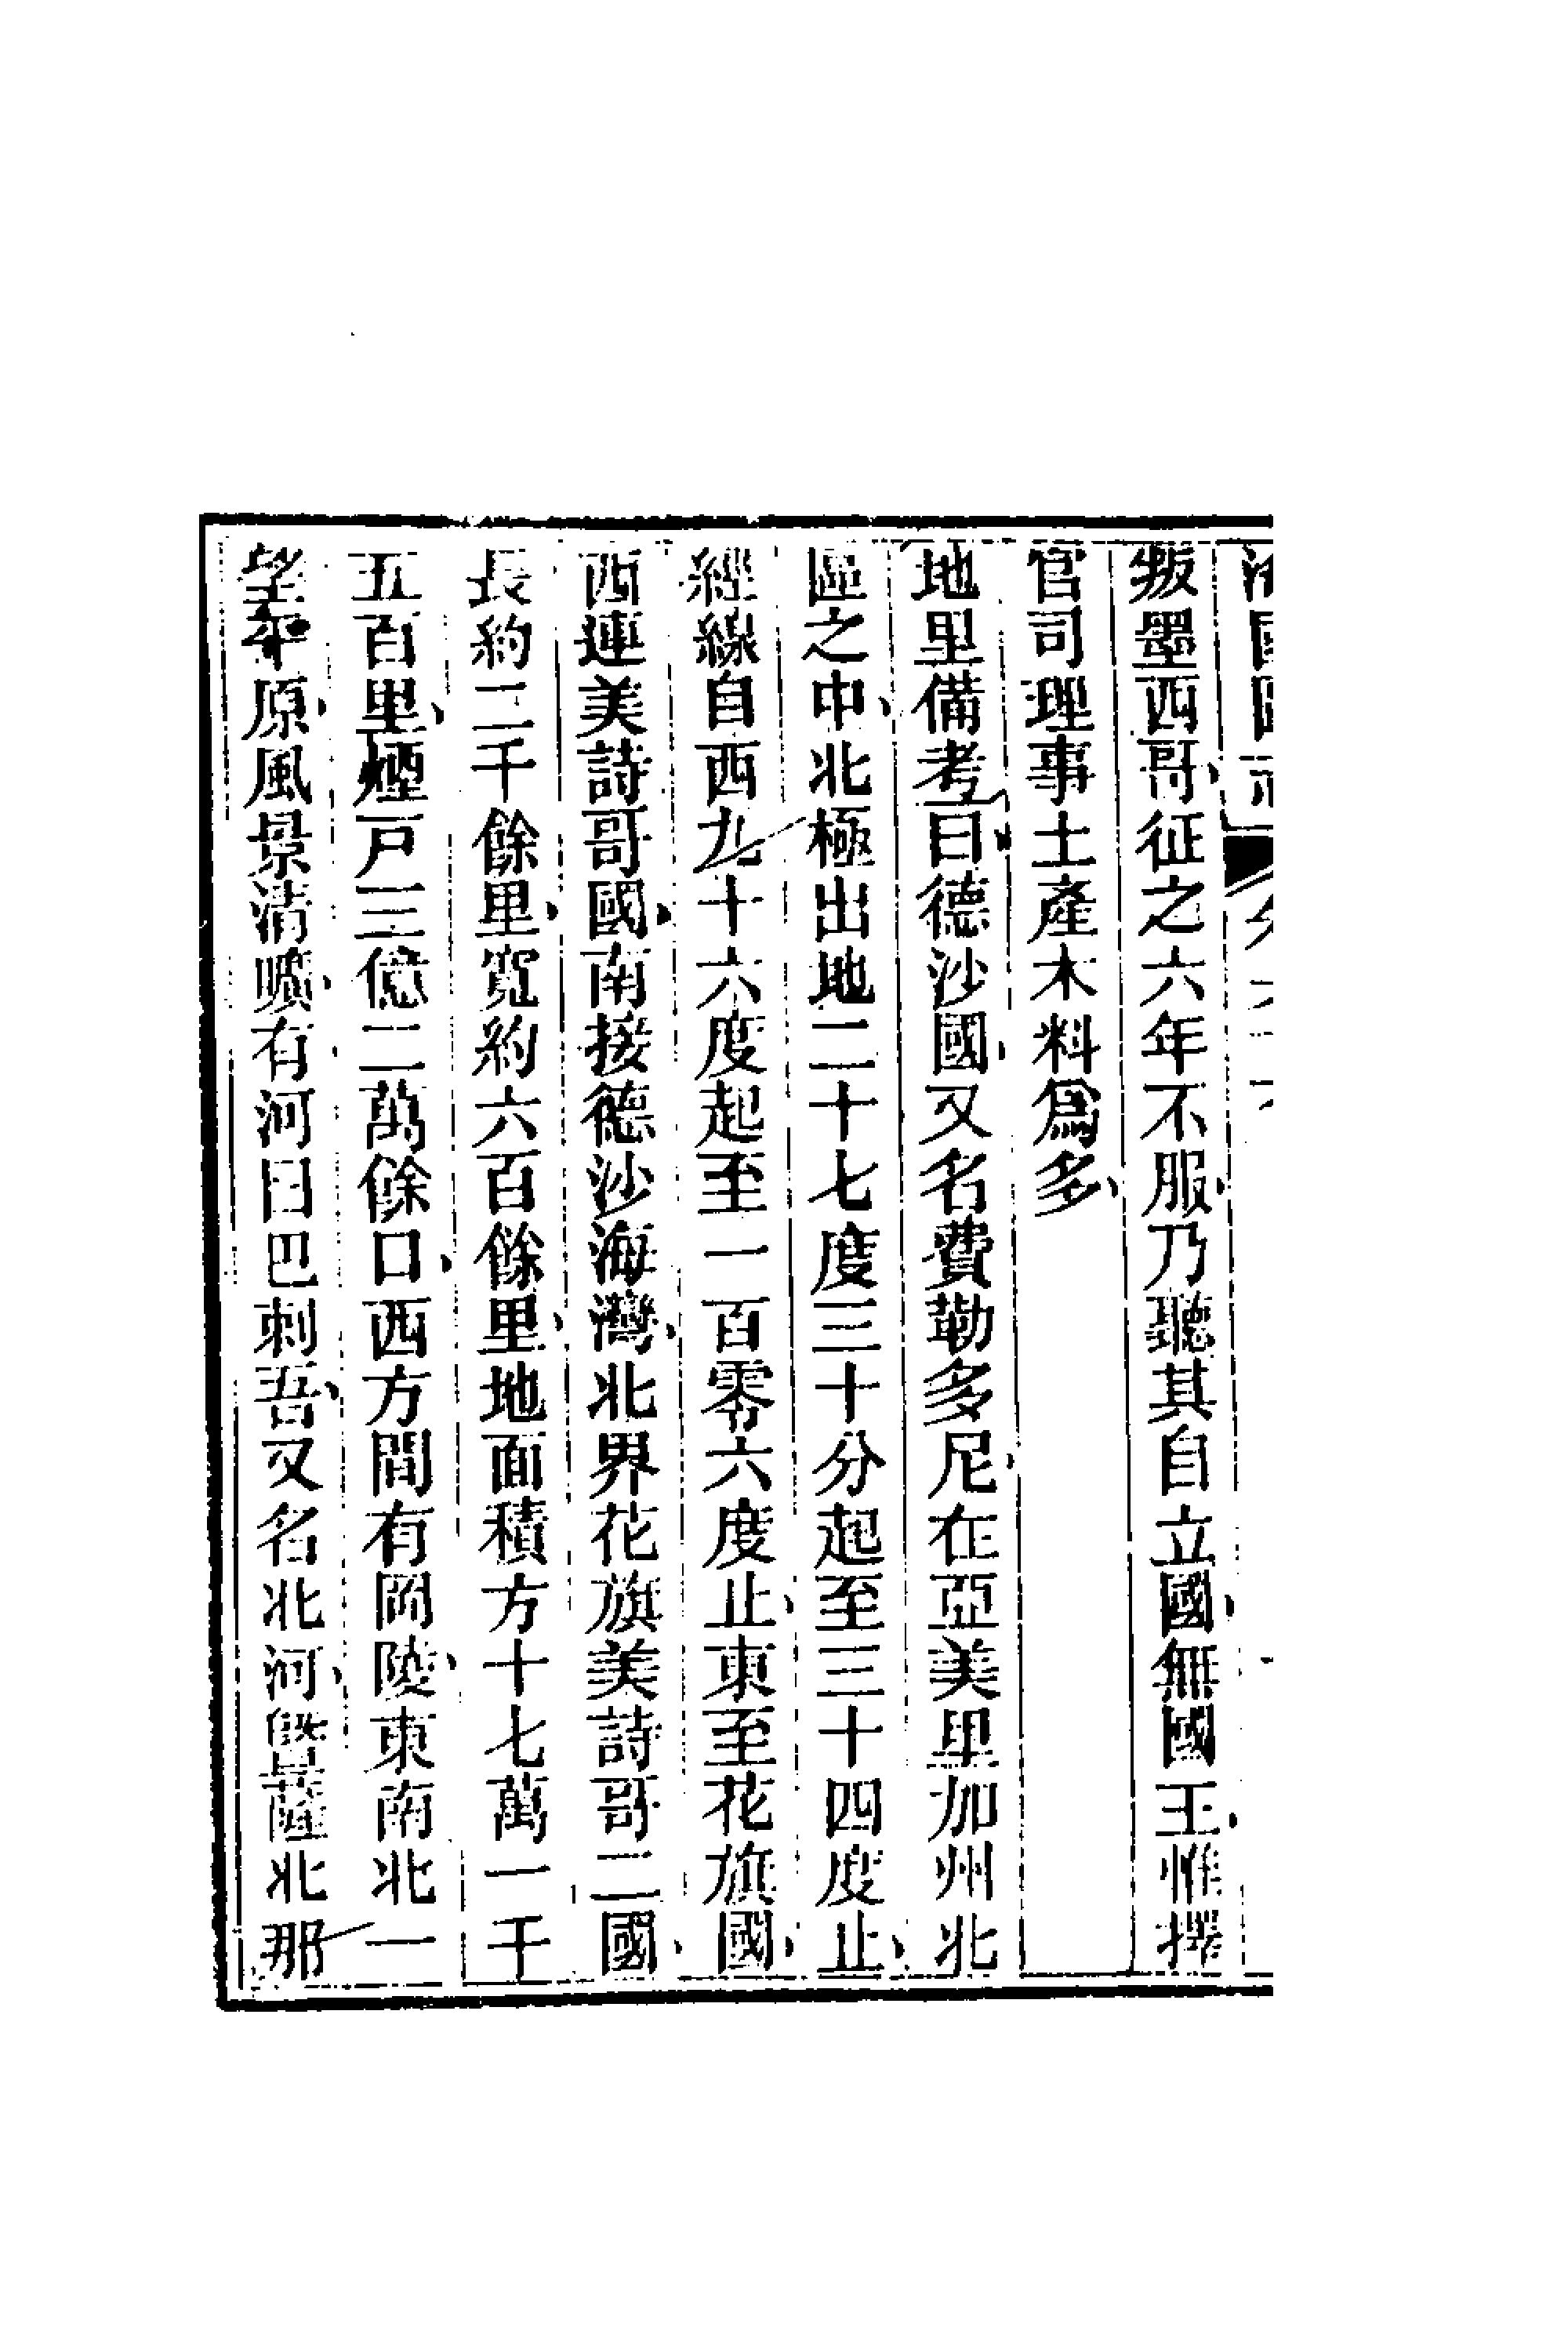 叛墨西哥征之六年不服乃聽其自立國無國王惟擇
官司理事土產木料爲多
地里備考曰德沙國又名費勒多尼在亞美里加州北
區之中北極出地二十七度三十分起至三十四度止
經線自西九十六度起至一百零六度止東至花旗國
西連美詩哥國南接德沙海灣北界花旗美詩哥二國
長約二千餘里寬約六百餘里地面積方十七萬一千
五百里煙戸三億二萬餘口西方間有岡陵東南北一
望平原風景清曠有河曰巴刺吾又名北河曁薩北那